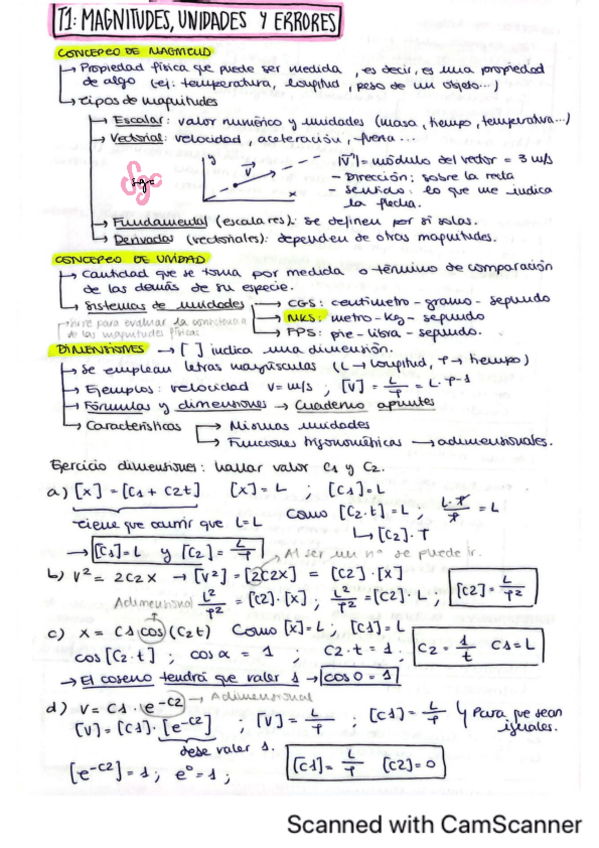 T1: MAGNITUDES, UNIDADES Y ERRORES
CONCEPTO DE MAGNITUD
↳ Propiedad física que puede ser medida, es decir, es una propiedad
de algo (ej: temperatura, longitud, peso de un objeto...)
↳ tipos de magnitudes
↳ Escalar: valor numérico y unidades (masa, tiempo, temperatura...)
↳ Vectorial: velocidad, aceleración, fuerza...
y
V
x
sgc
|V| = módulo del vector = 3 m/s
- Dirección: sobre la recta
- Sentido: lo que me indica
la flecha.
↳ Fundamental (escalares): se definen por si solas.
↳ Derivadas (vectoriales): dependen de otras magnitudes.
CONCEPTO DE UNIDAD
↳ Cantidad que se toma por medida o término de comparación
de las demás de su especie.
↳ Sistemas de unidades → CGS: centímetro - gramo - segundo
→ MKS: metro - kg - segundo
→ FPS: pie - libra - segundo.
Sirve para evaluar la consistencia
de las magnitudes físicas
DIMENSIONES → [ ] indica una dimensión.
↳ Se emplean letras mayúsculas (L → longitud, T → tiempo)
↳ Ejemplos: velocidad v = m/s ; [V] = L/T = L · T-1
↳ Fórmulas y dimensiones → Cuaderno apuntes
↳ Características → Mismas unidades
→ Funciones trigonométricas → adimensionales.
Ejercicio dimensiones: hallar valor C1 y C2.
a) [x] = [C1 + C2t] [x] = L ; [C1] = L
tiene que ocurrir que L = L
Como [C2.t] = L ; L·T/T = L
↳ [C2]·T
→ [C1] = L y [C2] = L/T
Al ser un nº se puede ir.
b) V² = 2C2X → [V²] = [2C2X] = [C2]·[X]
Adimensional L²/T² = [C2]·[X] ; L²/T² = [C2]·L ; [C2] = L/T²
c) X = C1 cos (C2t) Como [X] = L ; [C1] = L
cos [C2·t] ; cos α = 1 ; C2·t = 1 ; C2 = 1/t C1 = L
→ El coseno tendrá que valer 1 → cos 0 = 1
d) V = C1 · e^-C2 → Adimensional
[V] = [C1]·[e^-C2] ; [V] = L/T ; [C1] = L/T Para que sean
iguales.
debe valer 1.
[e^-C2] = 1 ; e^0 = 1 ; [C1] = L/T [C2] = 0
Scanned with CamScanner